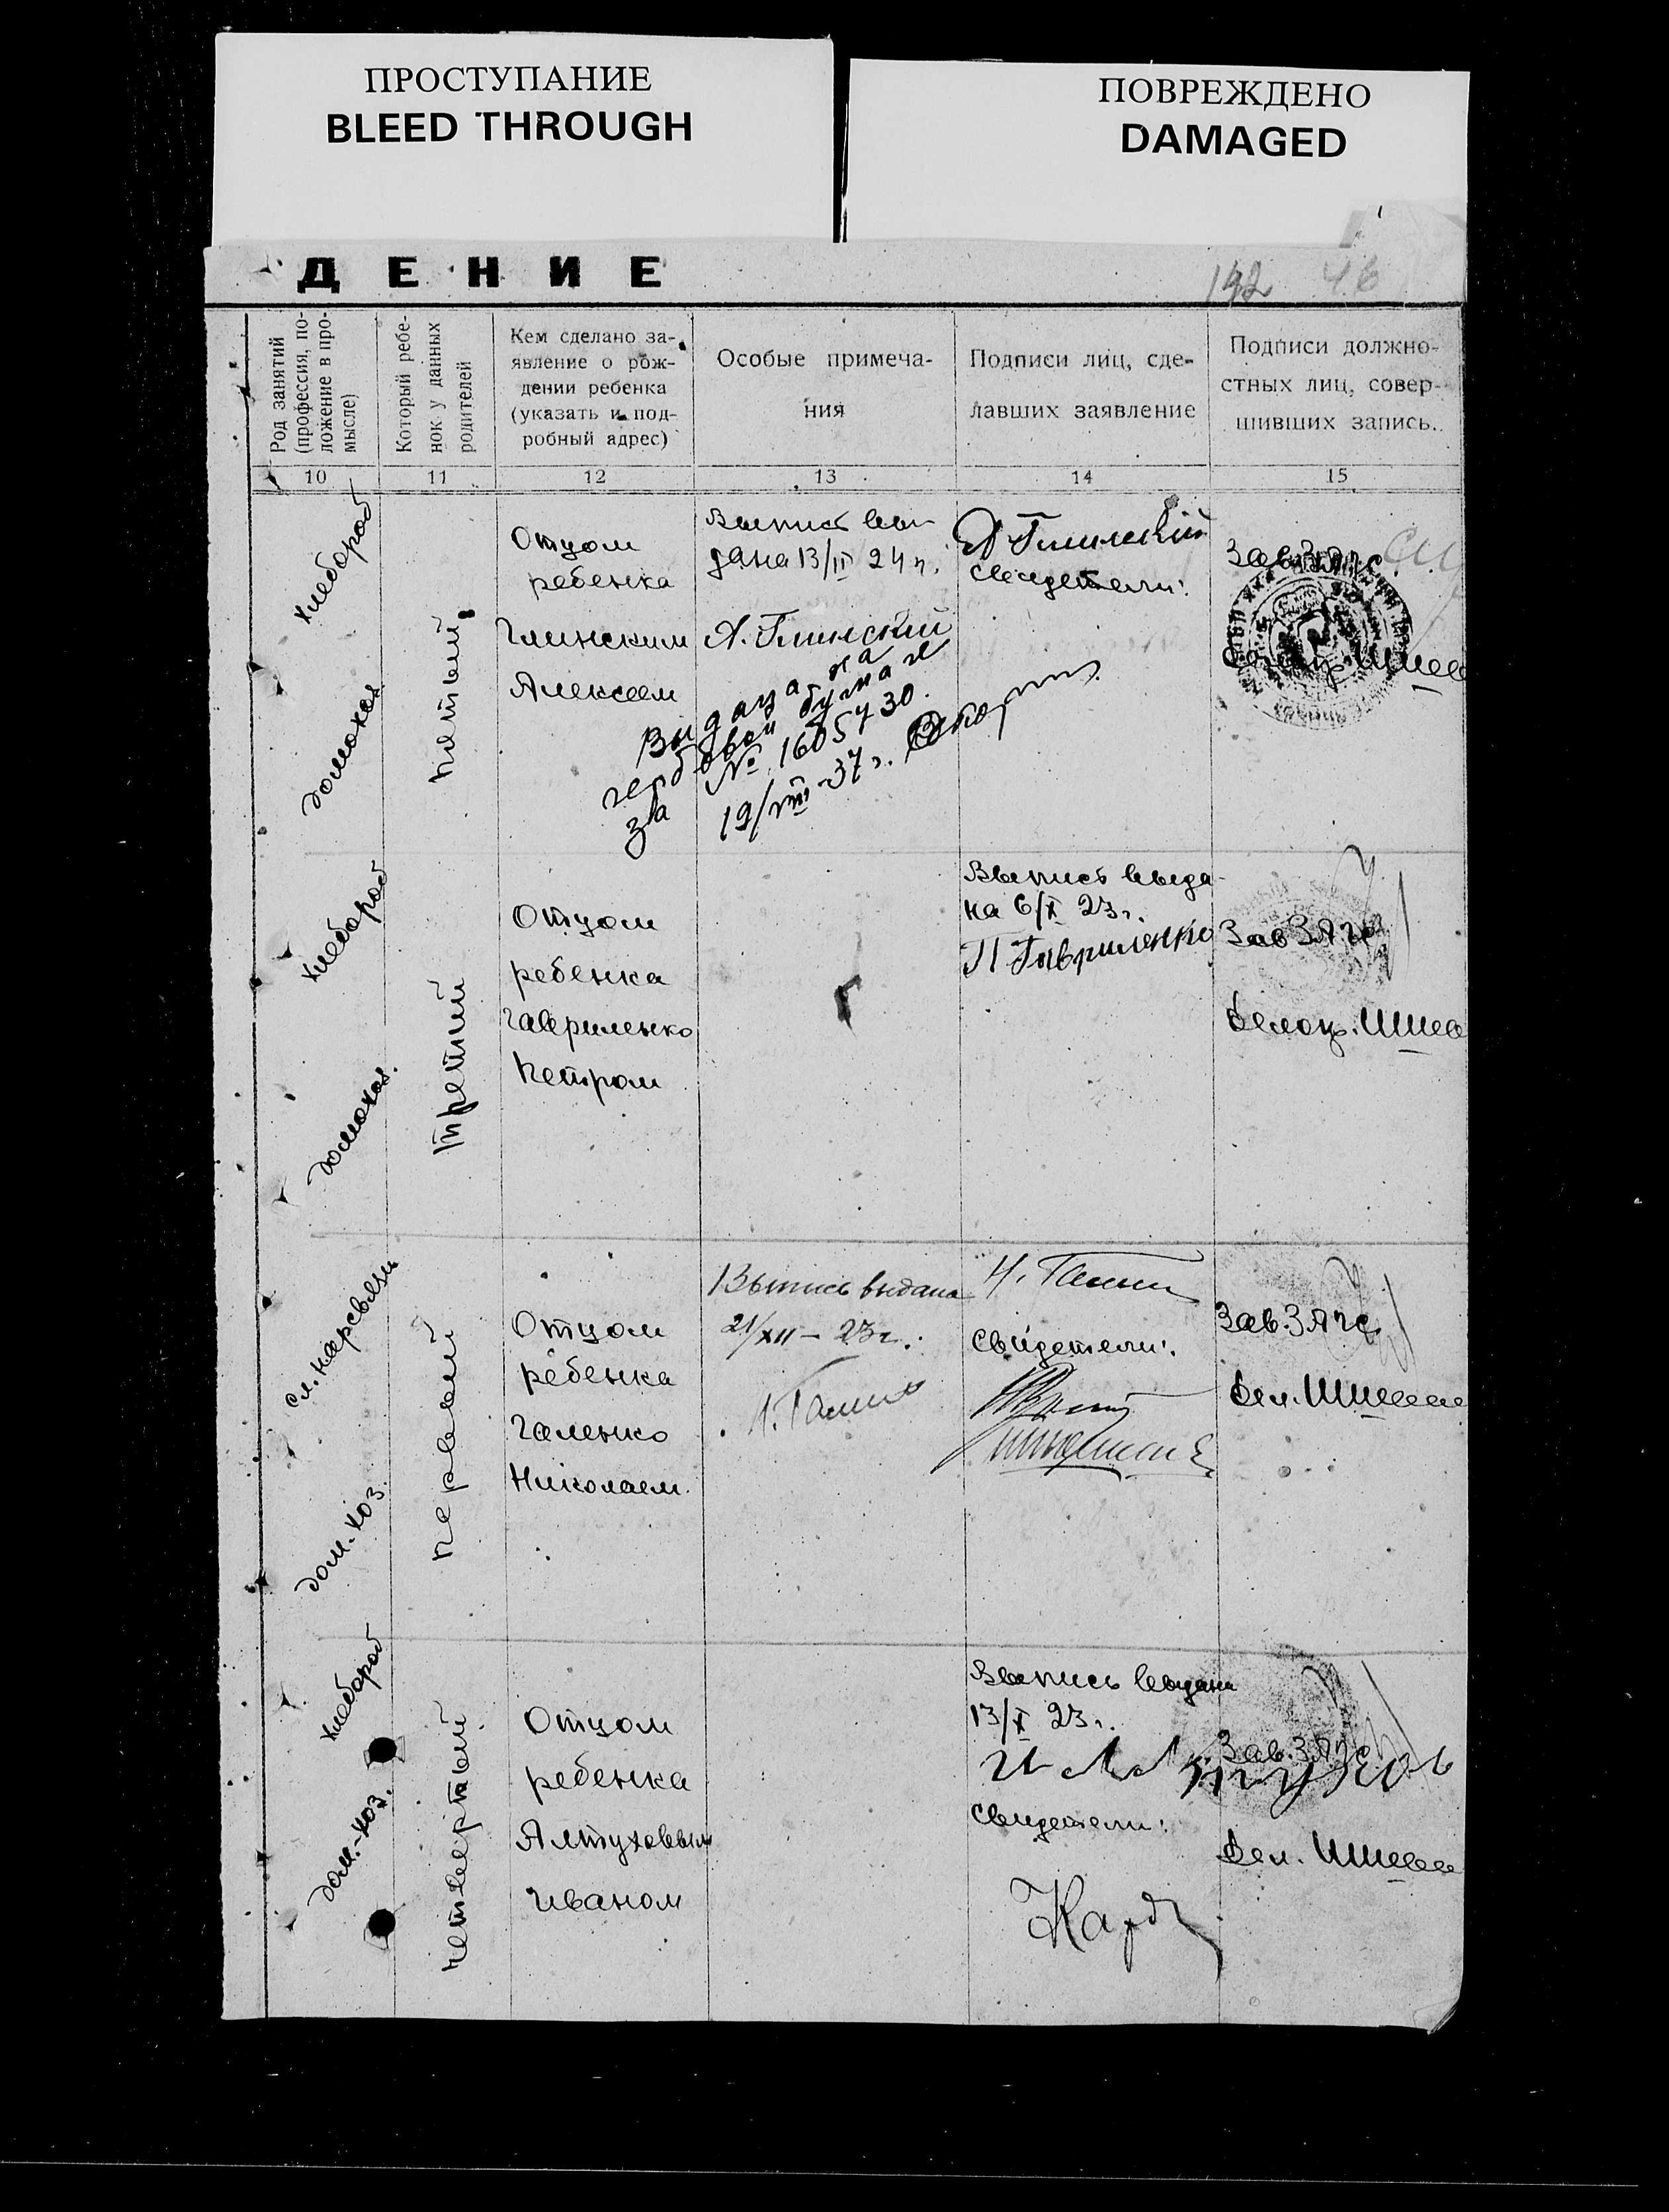 ПРОСТУПАНИЕ
BLEED THROUGH
ПОВРЕЖДЕНО
DAMAGED
ДЕНИЕ
192 46
Род занятий
(профессия, по-
ложение в про-
мысле)
Который ребе-
нок у данных
родителей
Кем сделано за-
явление о рож-
дении ребенка
(указать и под-
робный адрес)
Особые примеча-
ния
Подписи лиц, сде-
лавших заявление
Подписи должно-
стных лиц, совер-
шивших запись.
10 11 12 13 14 15
хлебороб
домохоз
пятый
Отцом
ребенка
Глинским
Алексеем
Выпись вы-
дана 13/II 24 г.
А. Глинский
Видана на
гербовой бумаге
за № 1605430
19/VIII-37 г.
А Глинский
свидетели:
Зав. ЗАГС
хлебороб
домохоз.
третий
Отцом
ребенка
Гавриленко
Петром
Выпись выда-
на 6/X 23 г.
П Гавриленко
Зав ЗАГС
дом. хоз.
первый
Отцом
ребенка
Галенко
Николаем.
Выпись выдана
21/XII – 23 г.
свидетели:
Зав. ЗАГС
хлебороб
дом.-хоз.
четвертый
Отцом
ребенка
Алтуховым
Иваном
Выпись выдана
13/X 23 г.
свидетели:
Зав. ЗАГС